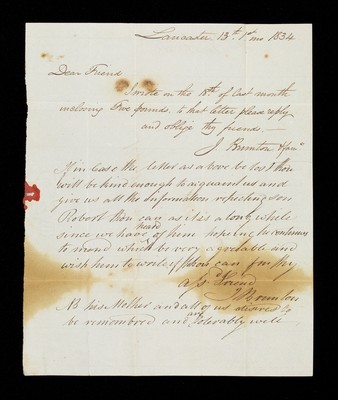 Lancaster 13th 1st mo 1834
Dear Friend
I wrote on the 18th of last month
inclosing Five pounds to that letter please reply
and oblige thy friends —
J Brunton & famy
If in case the letter as above be lost thou
will be kind enough to acquaint us and
give us all the Information respecting son
Robert thou can as it is a long while
since we have heard of him hoping he continues
to mend which be very agreeable and
wish him to write if thou can for thy
Friend
J Brunton
NB his Mother and all of us desires to
be remembered and are tolerably well